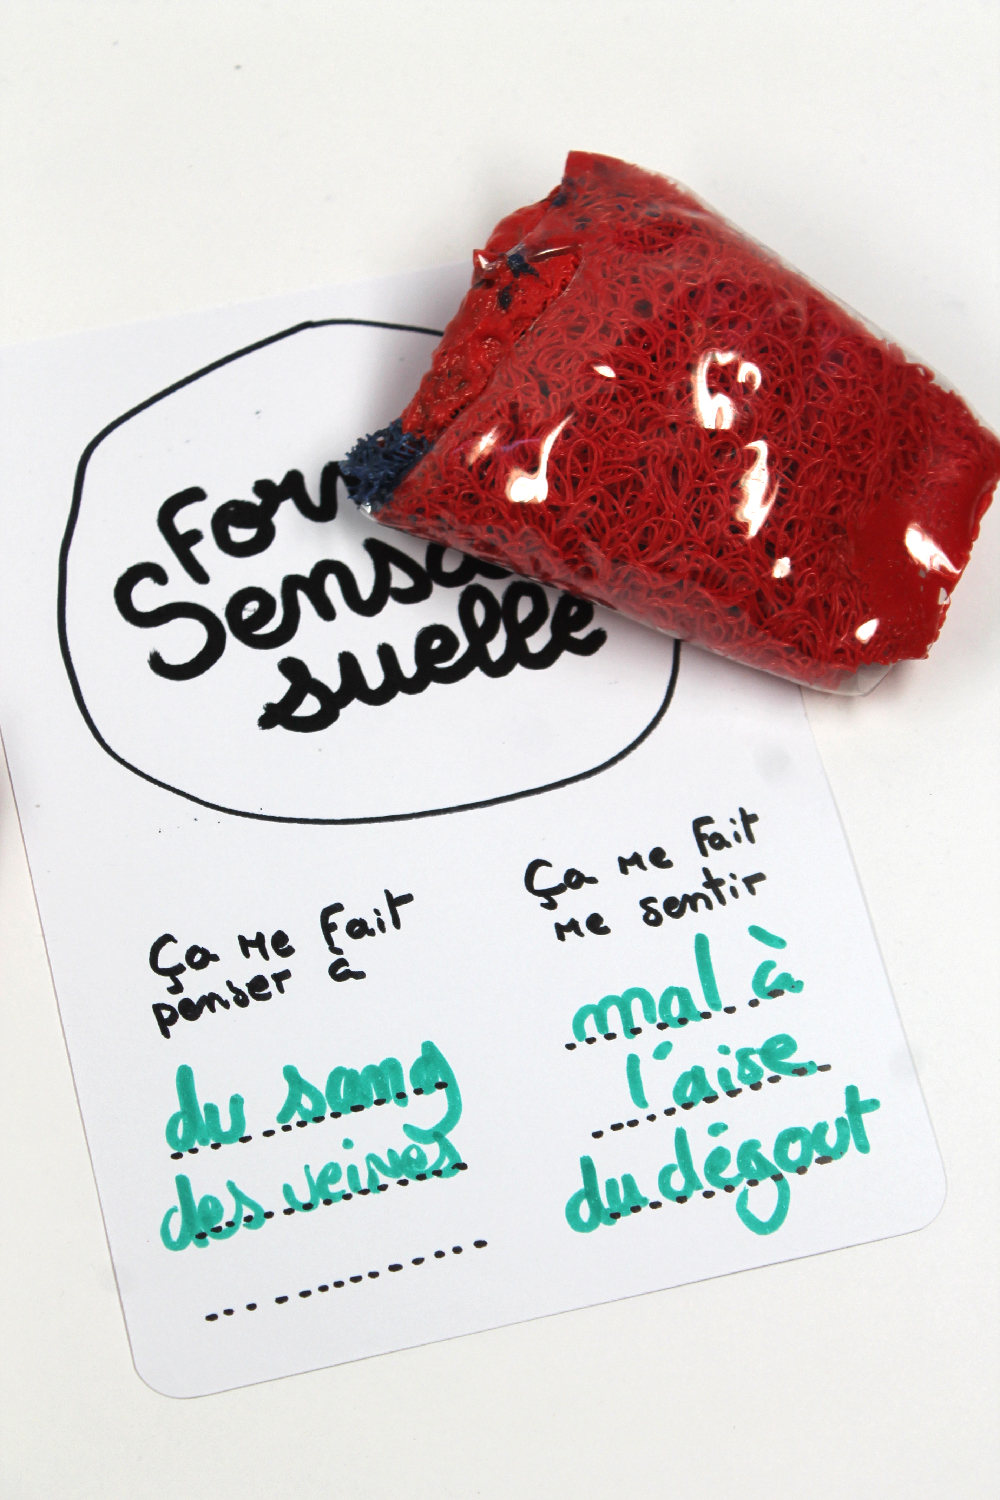 For
Sensa
suelle
Ça me fait
penser à
du sang
des veines
Ça me fait
me sentir
mal à
l'aise
du dégout